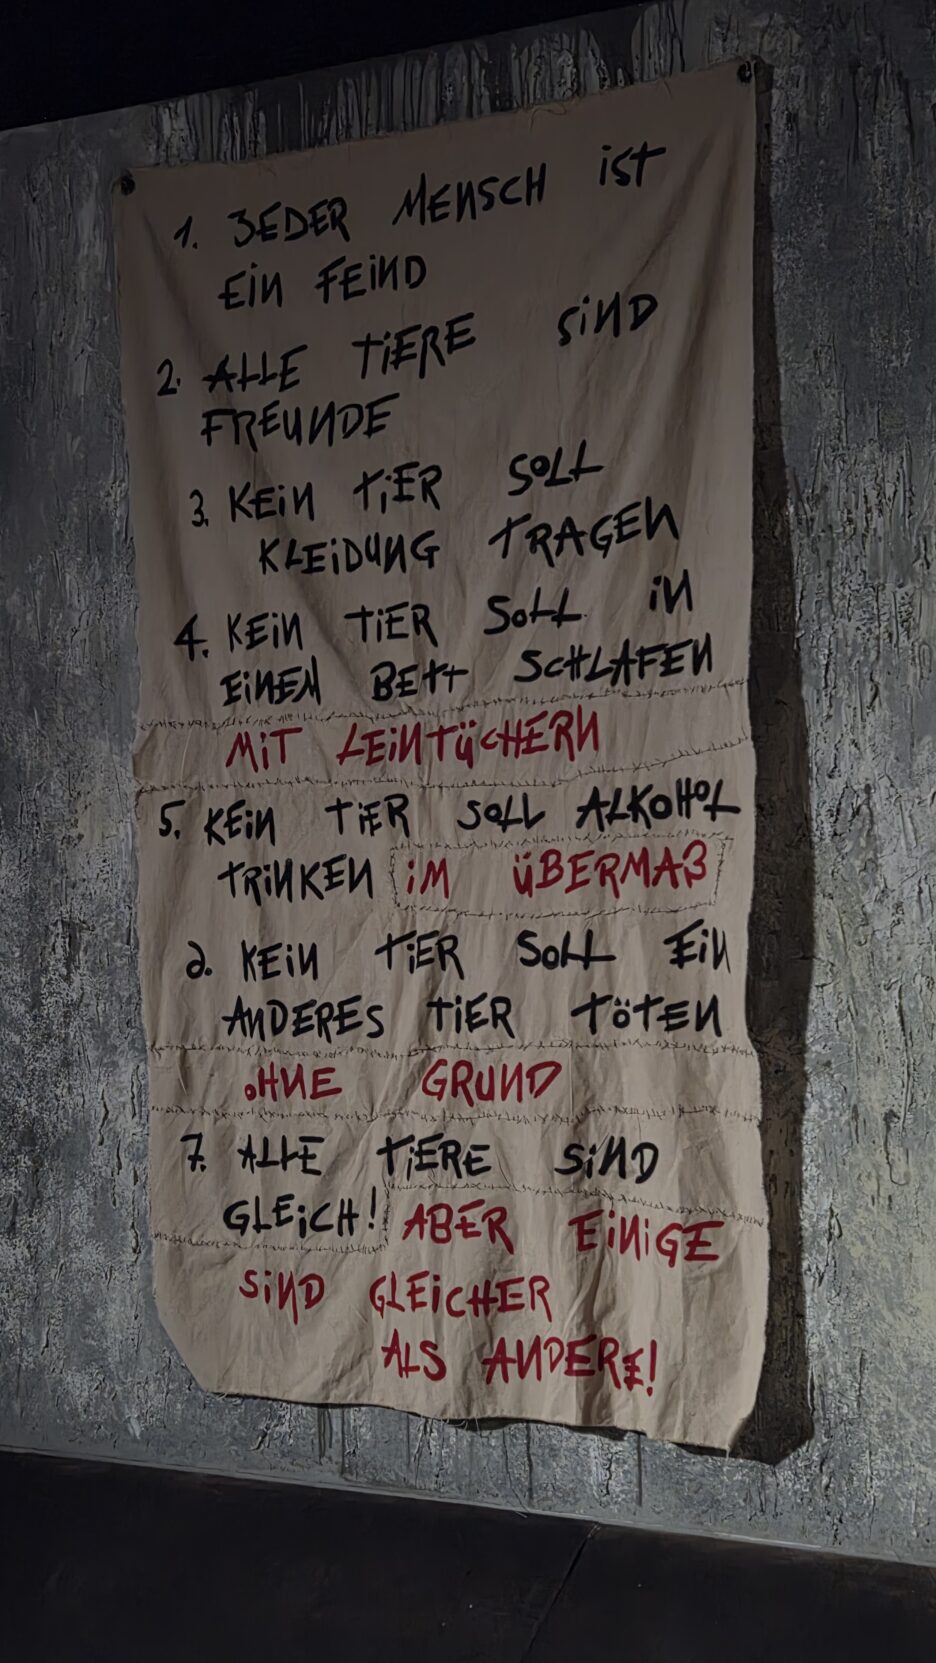 1. JEDER MENSCH iST
EiN FEiND
2. ALLE TiERE SiND
FREUNDE
3. KEiN TiER SOLL
KLEiDUNG TRAGEN
4. KEiN TiER SOLL iN
EiNEM BETT SCHLAFEN
MiT LEiNTÜCHERN
5. KEiN TiER SOLL ALKOHOL
TRiNKEN iM ÜBERMAß
6. KEiN TiER SOLL EiN
ANDERES TiER TÖTEN
OHNE GRUND
7. ALLE TiERE SiND
GLEiCH! ABER EiNiGE
SiND GLEiCHER
ALS ANDERE!